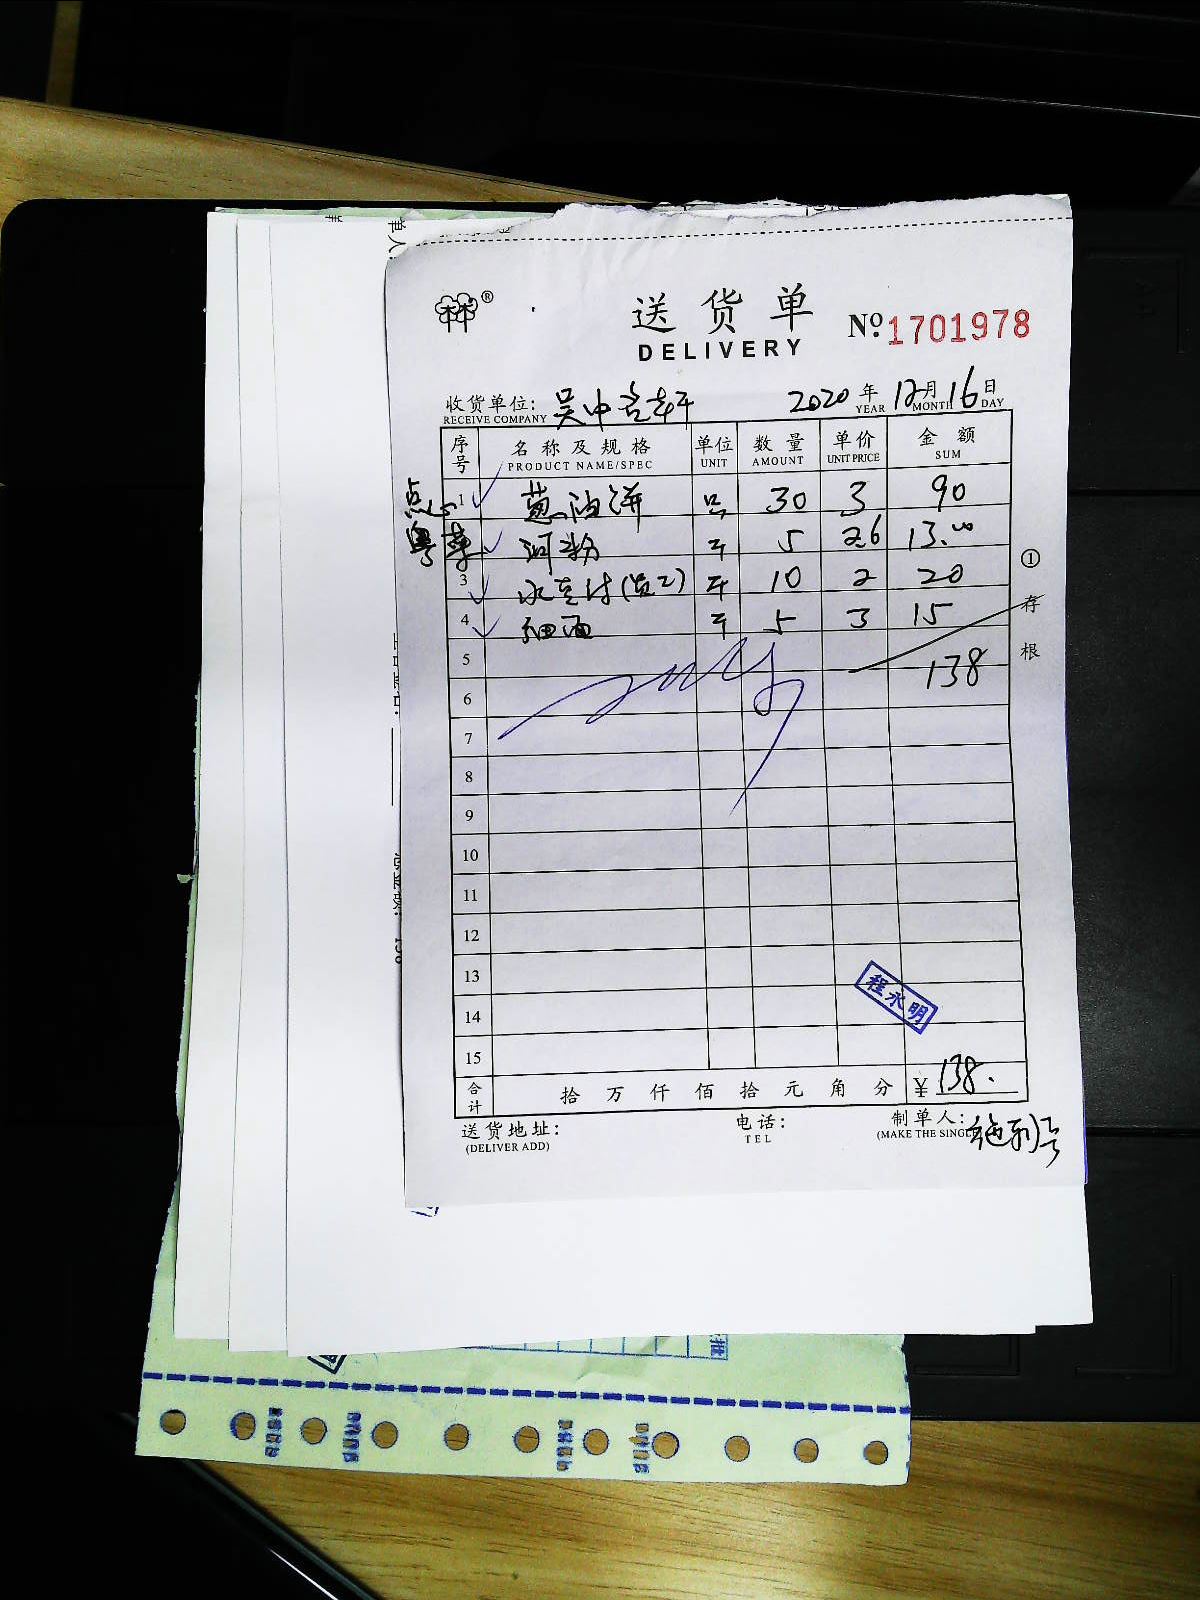 送货单
DELIVERY
№ 1701978
收货单位: 吴中 2020 年 12 月 16 日
RECEIVE COMPANY YEAR MONTH DAY
序号 名称及规格 单位 数量 单价 金额
PRODUCT NAME/SPEC UNIT AMOUNT UNIT PRICE SUM
点心 1 葱油饼 只 30 3 90
粤菜 河粉 斤 5 2.6 13.00
3 水 (员工) 斤 10 2 20
4 细面 斤 5 3 15
5 138
6
7
8
9
10
11
12
13
14
15
① 存根
程永明
合计 拾万仟佰拾元角分 ¥ 138.
送货地址: 电话: 制单人:
(DELIVER ADD) TEL (MAKE THE SINGL